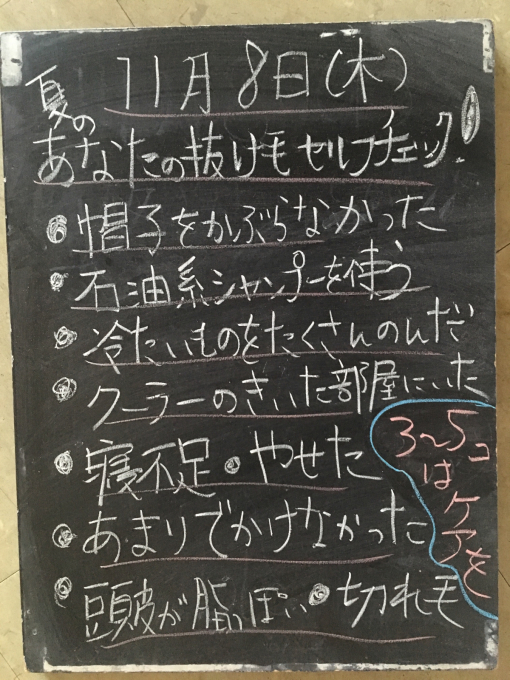 11月8日(木)
夏の
あなたの抜け毛セルフチェック!
• 帽子をかぶらなかった
• 石油系シャンプーを使う
• 冷たいものをたくさんのんだ
• クーラーのきいた部屋にいた
• 寝不足・やせた
• あまりでかけなかった
• 頭皮が脂っぽい・切れ毛
3~5コ
はケアを